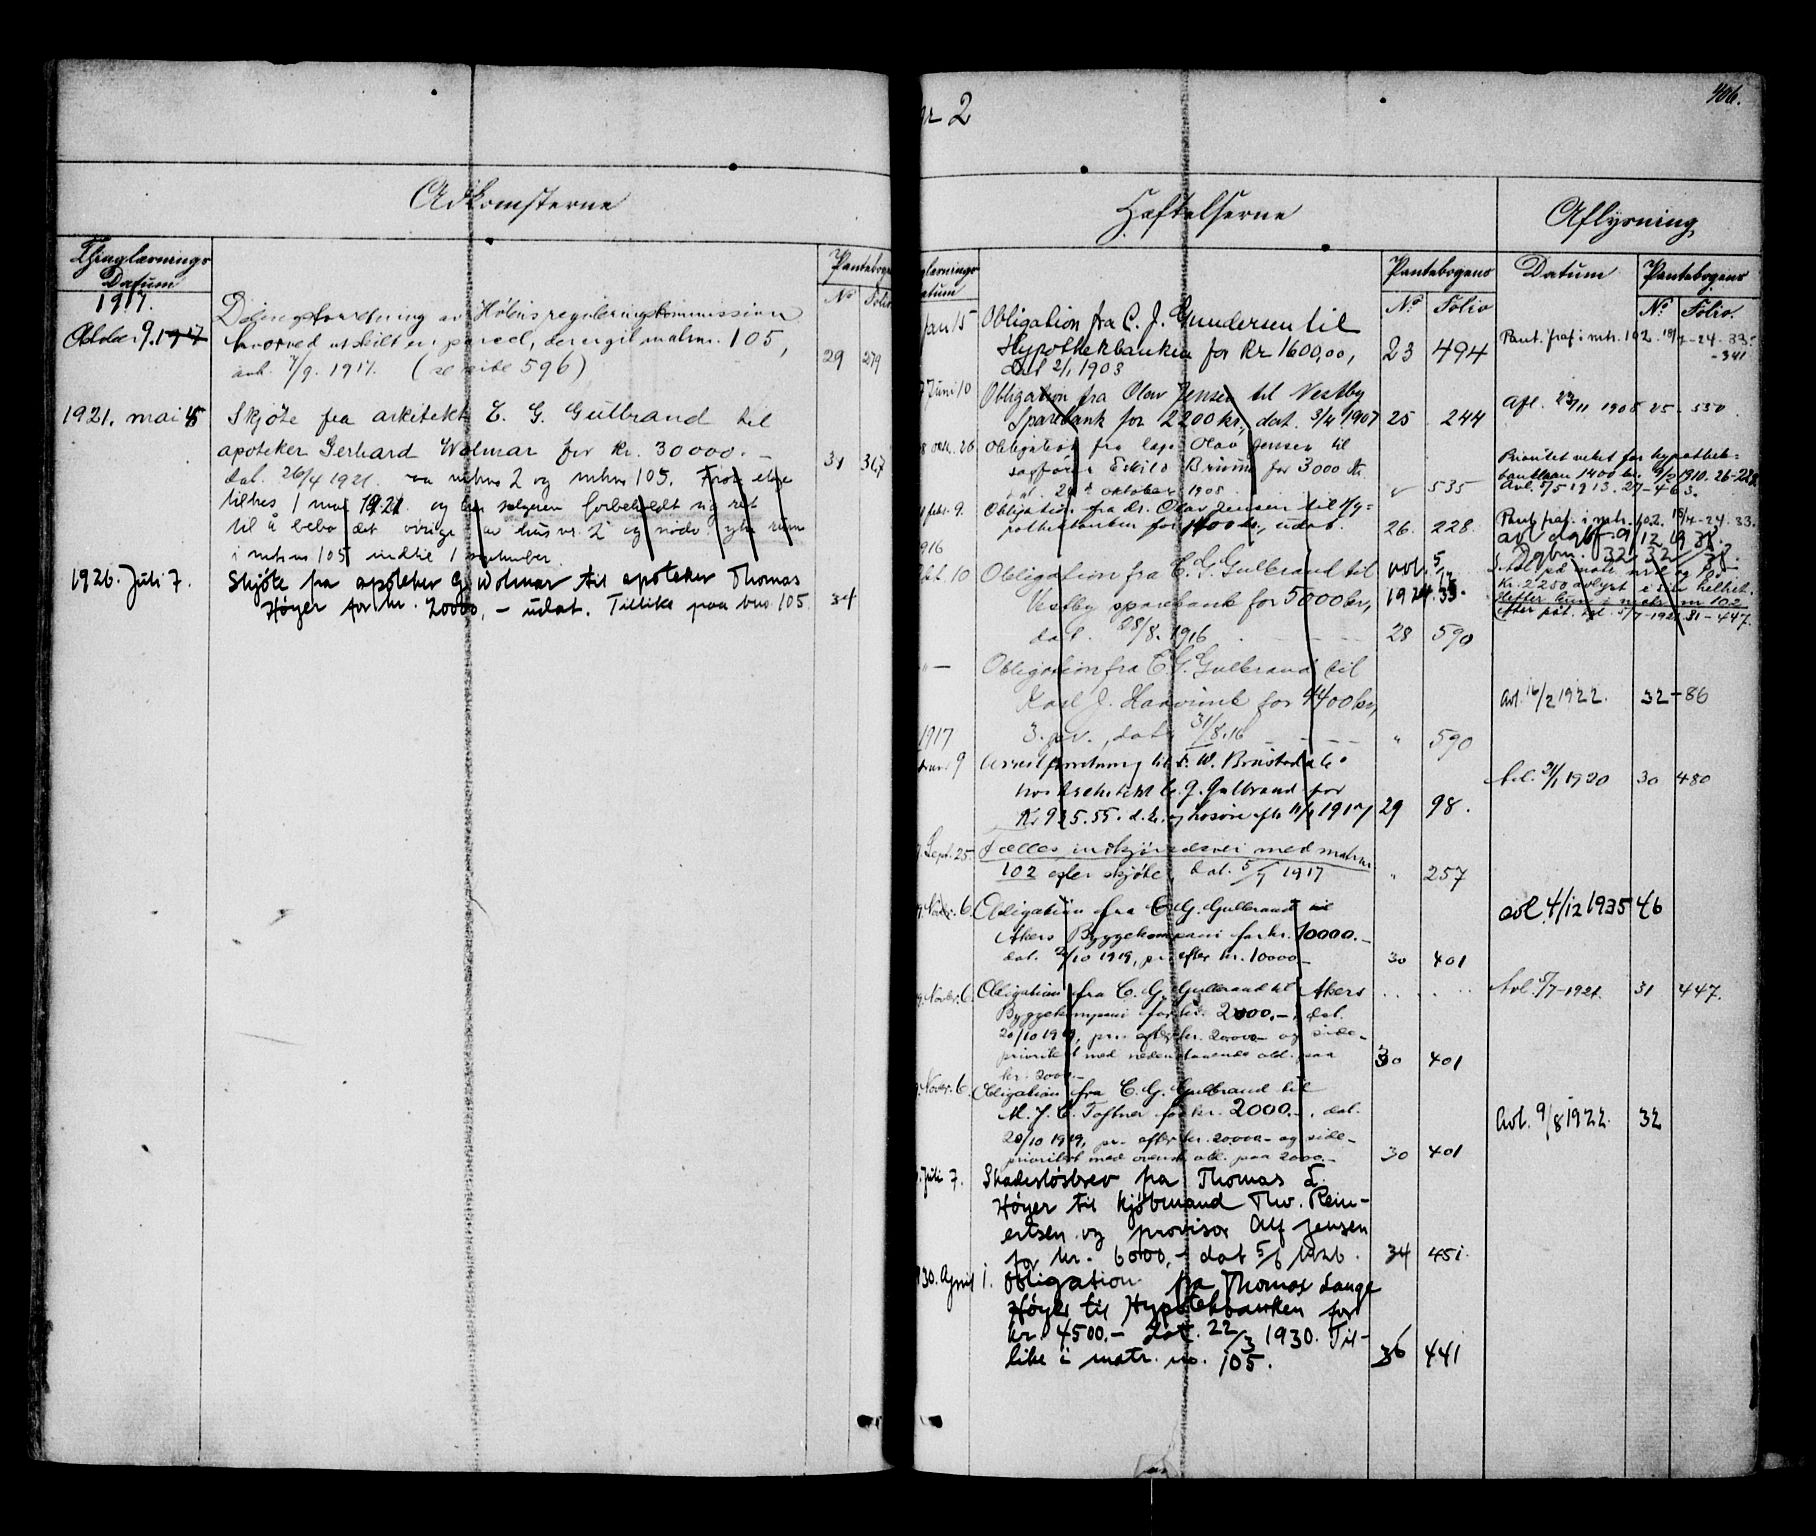 Adkomsterne
Thinglæsnings
Datum
Pantebogens
No Folio
1917.
October 9. 1917
Delingsforretning av Hølens reguleringskommission
hvorved utskilt en parcel, der er git matrnr. 105,
avh. 7/9. 1917. (se side 596)
29 279
1921. mai 5
Skjøte fra arkitekt C. G. Gulbrand til
apoteker Gerhard Wolmar for kr. 30000.—
31 367
dat. 26/4 1921. paa matrnr 2 og matrnr 105.
tiltres 1 mai 1921 og har selgeren forbeholdt sig ret
til å bebo det øvrige av hus nr. 2 og
i matrnr 105 indtil 1 september.
1926. Juli 7.
Skjøte fra apoteker G. Wolmar til apoteker Thomas
Høyer for kr. 20000,- udat. Tillike paa bno 105
34
nr 2
406.
Hæftelserne
Aflysning
glæsnings
atum
Pantebogens
No Folio
Datum
Pantebogens
No Folio
Jan 15
Obligation fra C. J. Gundersen til
Hypothekbanken for Kr 1600,00,
dat 2/1 1903
23 494
Pant. fraf. i mtr. 102 15/4-24. 33.
-341
Juni 10
Obligation fra Olav Jensen til Vestby
Sparebank for 2200 kr., dat. 3/4 1907
25 244
Afl. 23/11 1908 25. 530.
8 okt. 26
Obligation fra Olav Jensen til
sagfører Eskild Bruun for 3000 kr
dat. 24de oktober 1908.
" 535
Prioritet veket for hypothek-
banklaan 1400 kr. 1910. 26-228
Avl. 7/5 1913. 27-463.
febr. 9.
Obligation fra Dr. Olav Jensen til Hy-
pothekbanken for 1400 kr., udat.
26. 228
Pant fraf. i mtr. 102. 15/4-24. 33.
1916
Okt. 10
Obligation fra C. G. Gulbrand til
Vestby sparebank for 5000 kr,
dat. 28/8. 1916
28 590
Kr. 2250 avlyst i sin helhet.
Hefter kun i matr. nr 102
efter påt. dat. 5/7-1921 31-447.
" —
Obligation fra C. G. Gulbrand til
Karl J. Haavimb for 4400 kr,
3. pr., dat. 31/8. 16
" 590
avl. 16/2 1922. 32-86
1917
9
Arrestforretning til F. W. Brustad
hos Architekt C. G. Gulbrand for
Kr 925.55. 1917
29 98.
Avl. 31/1 1920 30 480
Sept. 25.
Fælles indkjørselsvei med matrnr
102 efter skjøte, dat. 5/7 1917
" 257
Novbr. 6.
Obligation fra C. G. Gulbrand til
Akers Byggekompani for kr. 10000.—
dat. 2/10 1919, pr. efter kr. 10000—
30 401
avl. 4/12 1935 46
Novbr. 6.
Obligation fra C. G. Gulbrand til Akers
Byggekompani for kr. 2000.—, dat.
20/10 1919, pr. efter kr. 20000— og side-
prioritet med nedenstaaende obl. paa
kr. 2000.—
30 401
Avl. 5/7-1921. 31 447.
Novbr. 6.
Obligation fra C. G. Gulbrand til
M. J. C. Toftner for kr. 2000.—, dat.
20/10 1919, pr. efter kr. 20000— og side-
prioritet med ovenst. obl. paa 2000.—
30 401
Avl. 9/8 1922. 32
Juli 7.
Skadesløsbrev fra Thomas L.
Høyer til kjøbmand Thv. Rein-
ertsen og provisor Alf Jensen
for kr. 6000,- dat 5/6 1926.
34 451.
30. April 1.
Obligation fra Thomas Lange
Høyer til Hypotekbanken for
kr. 4500.- Dat. 22/3 1930. Til-
like i matr. no. 105.
36 441